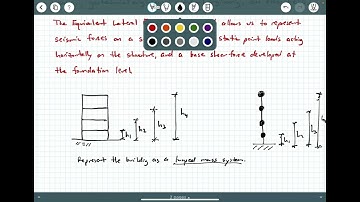 The Equivalent Lateral allows us to represent
seismic forces on a s static point loads acting
horizontally on the structure, and a base shear force developed at
the foundation level
h₁ h₂ h₃ h₄
h₁ h₂ h₃
Represent the building as a lumped mass system.